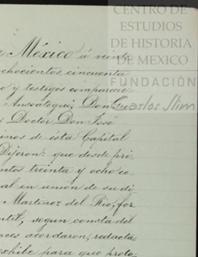 CENTRO DE
ESTUDIOS
DE HISTORIA
DE MEXICO
FUNDACIÓN
Carlos Slim
México á veinte
chocientos cincuenta
y testigos comparecie
Anzoategui, Don
Doctor Don José
inos de esta Capital
Dijeron: que desde pri
entos treinta y ocho co
al en union de su di
Martinez del Rio, for
ntil, segun consta del
nces acordaron, redacta
para que proto